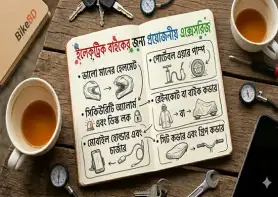 BikeBD
ইলেকট্রিক বাইকের জন্য প্রয়োজনীয় এক্সেসরিজ
•ভালো মানের হেলমেট
•সিকিউরিটি অ্যালার্ম
এবং ডিস্ক লক
•মোবাইল হোল্ডার এবং
চার্জার
•পোর্টেবল এয়ার পাম্প
•রেইনকোট বা বাইক কভার
বা
•সিট কভার এবং গ্রিপ কভার